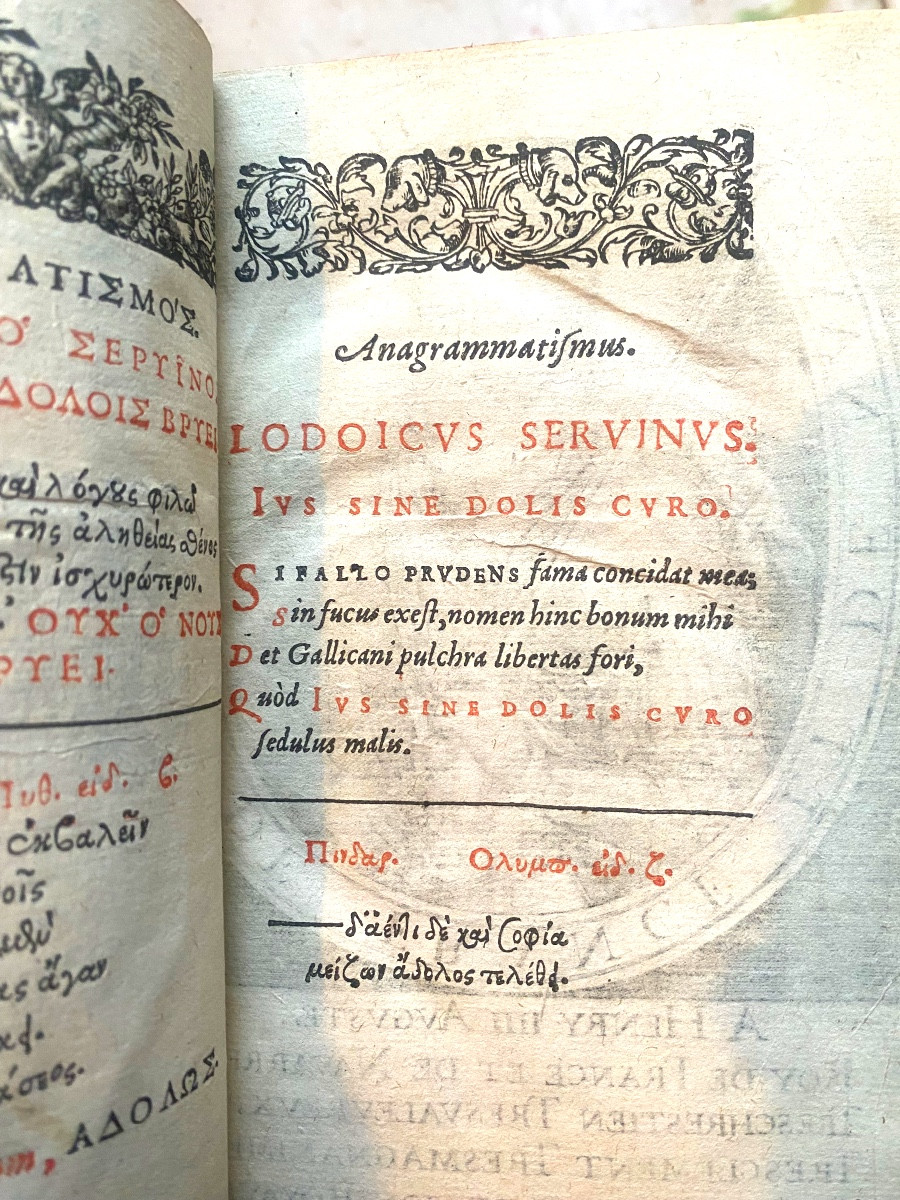 ΑΤΙΣΜΟΎΣ.
Ὁ ΣΕΡΥῖΝΟ
ΔΟΛΟΙΣ ΒΡΥΕΙ
καὶ λόγους φιλῶ
τῆς ἀληθείας σθένος
ἰσχυρώτερον.
ΟΥΧ' Ὁ ΝΟΥ
ΡΥΕΙ.
Πυθ. εἰδ. β.
ἐκβαλεῖν
οῖς
ἄγαν
ΑΔΟΛΩΣ.
Anagrammatiſmus.
LODOICVS SERVINVS.
IVS SINE DOLIS CVRO.
SI FALLO PRVDENS fama concidat mea;
Sin fucus exeſt, nomen hinc bonum mihi
Det Gallicani pulchra libertas fori,
Quòd IVS SINE DOLIS CVRO
ſedulus malis.
Πινδαρ. Ολυμπ. εἰδ. ζ.
δαέντι δὲ καὶ σοφία
μείζων ἄδολος τελέθει.